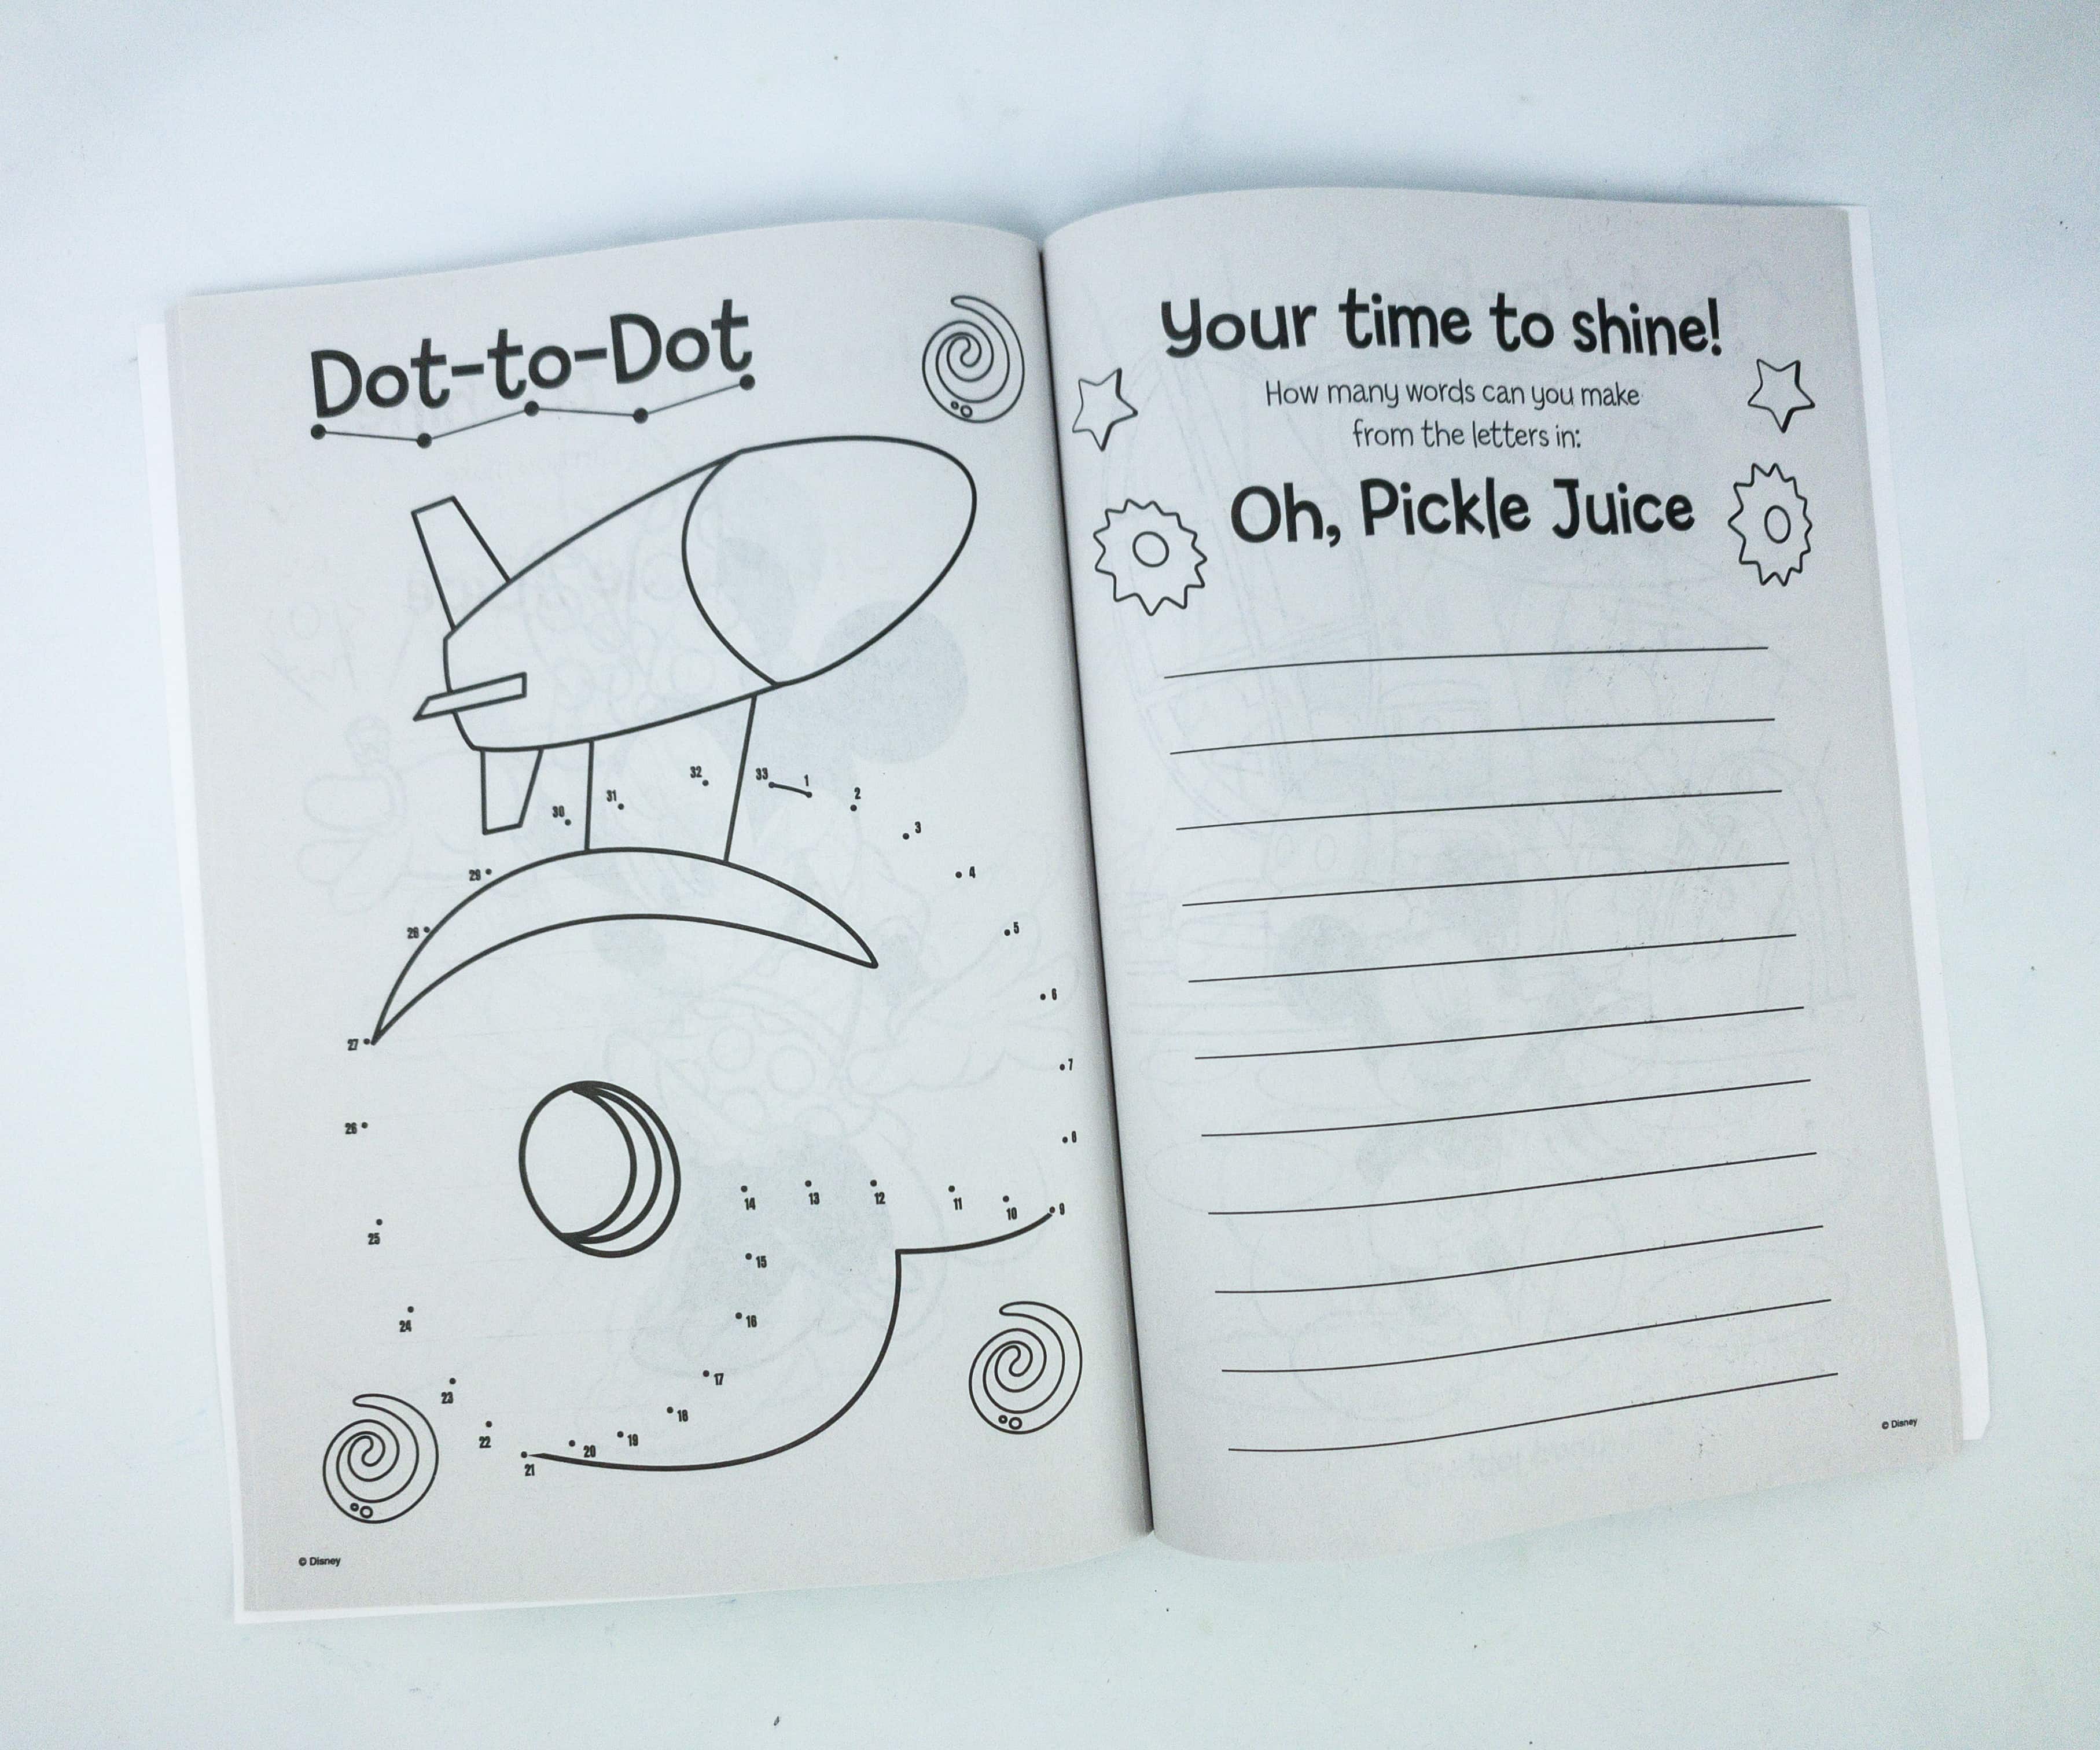 Dot-to-Dot
32
33
1
2
31
30
3
29
4
28
5
6
27
7
26
8
14
13
12
11
10
9
25
15
24
16
23
17
22
18
21
20
19
© Disney
your time to shine!
How many words can you make
from the letters in:
Oh, Pickle Juice
© Disney